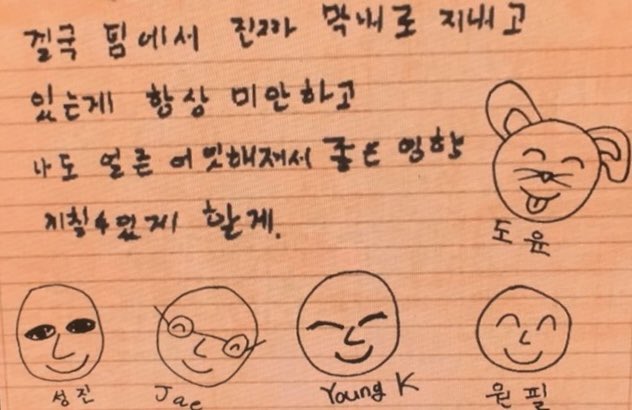 결국 팀에서 진짜 막내로 지내고
있는게 항상 미안하고
나도 얼른 어엿해져서 좋은 영향
끼칠수있게 할게.
도윤
성진
Jae
Young K
원필